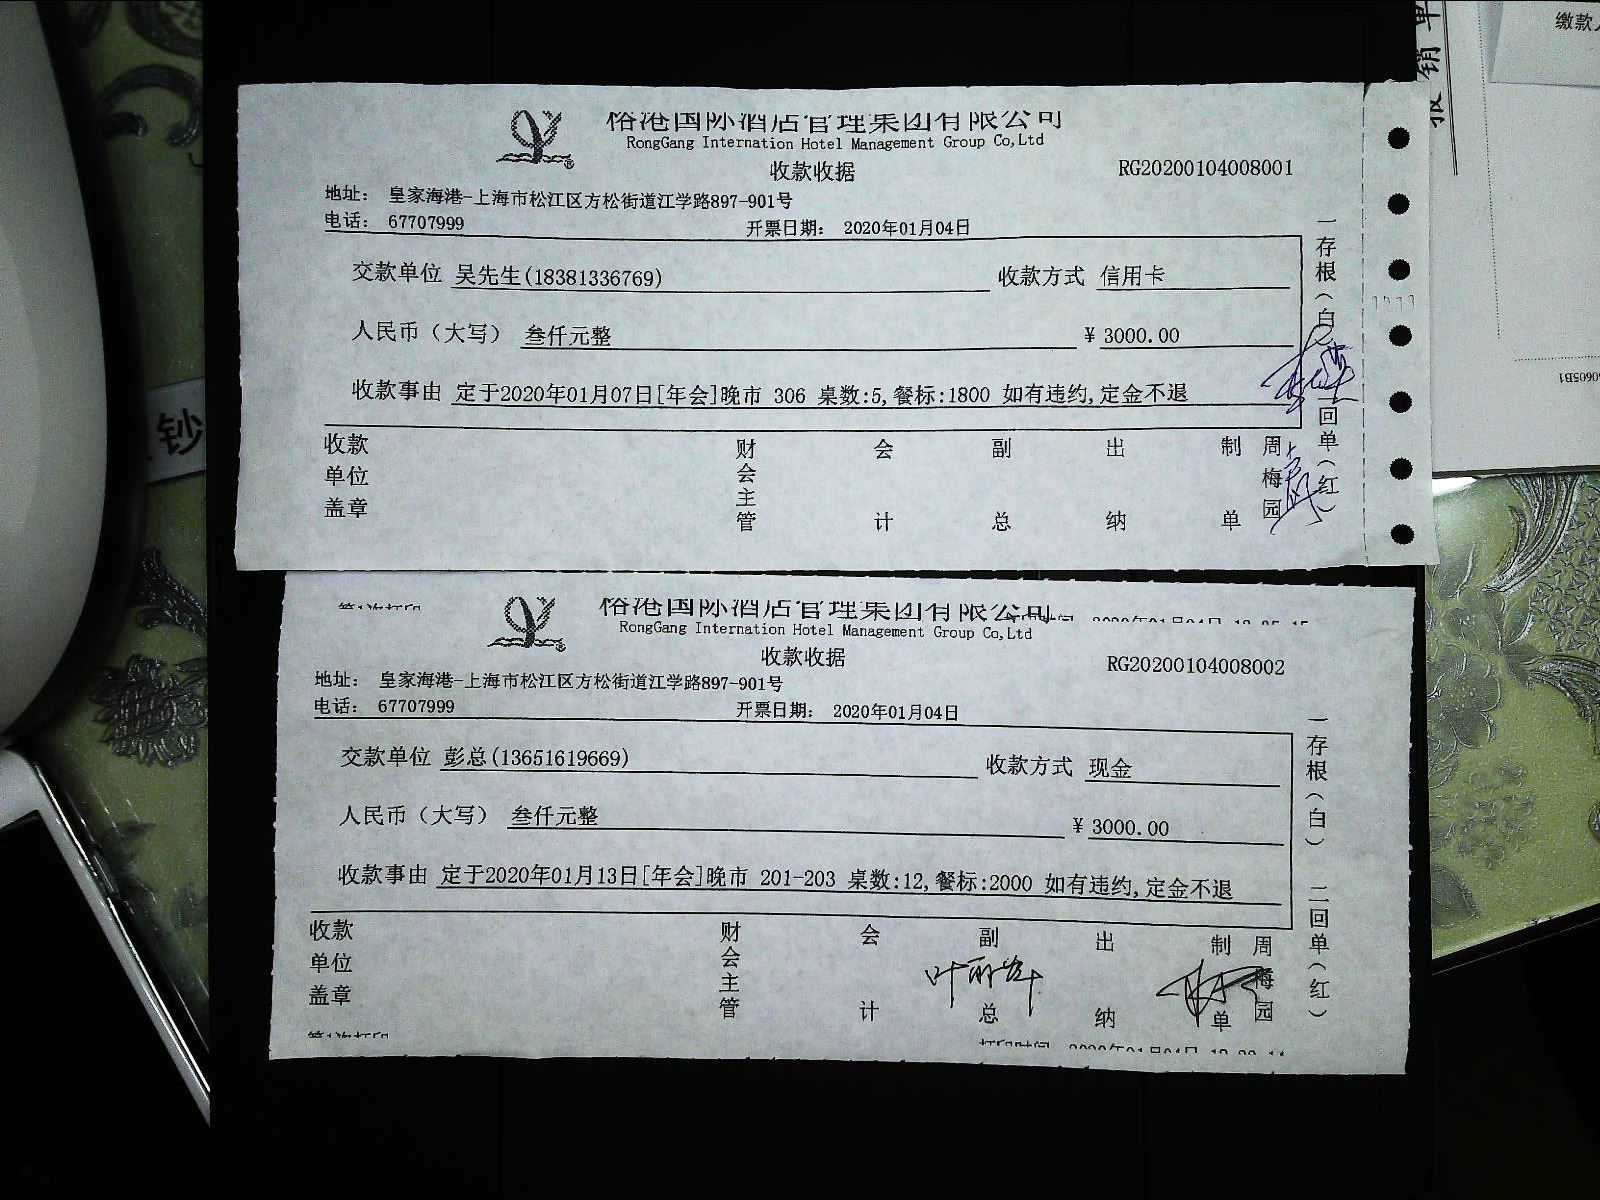 俗港国际酒店管理集团有限公司
RongGang Internation Hotel Management Group Co,Ltd
收款收据
RG20200104008001
地址： 皇家海港-上海市松江区方松街道江学路897-901号
电话： 67707999
开票日期： 2020年01月04日
交款单位 吴先生(18381336769)
收款方式 信用卡
人民币（大写） 叁仟元整
¥ 3000.00
收款事由 定于2020年01月07日[年会]晚市 306 桌数:5,餐标:1800 如有违约,定金不退
收款单位盖章
财会主管
会计
副总
出纳
制单
周梅园
一存根（白
回单（红）
俗港国际酒店管理集团有限公司
RongGang Internation Hotel Management Group Co,Ltd
收款收据
RG20200104008002
地址： 皇家海港-上海市松江区方松街道江学路897-901号
电话： 67707999
开票日期： 2020年01月04日
交款单位 彭总(13651619669)
收款方式 现金
人民币（大写） 叁仟元整
¥ 3000.00
收款事由 定于2020年01月13日[年会]晚市 201-203 桌数:12,餐标:2000 如有违约,定金不退
收款单位盖章
财会主管
会计
副总
叶丽华
出纳
制单
周梅园
一存根（白） 二回单（红）
第1次打印
打印时间
报销单
缴款
钞